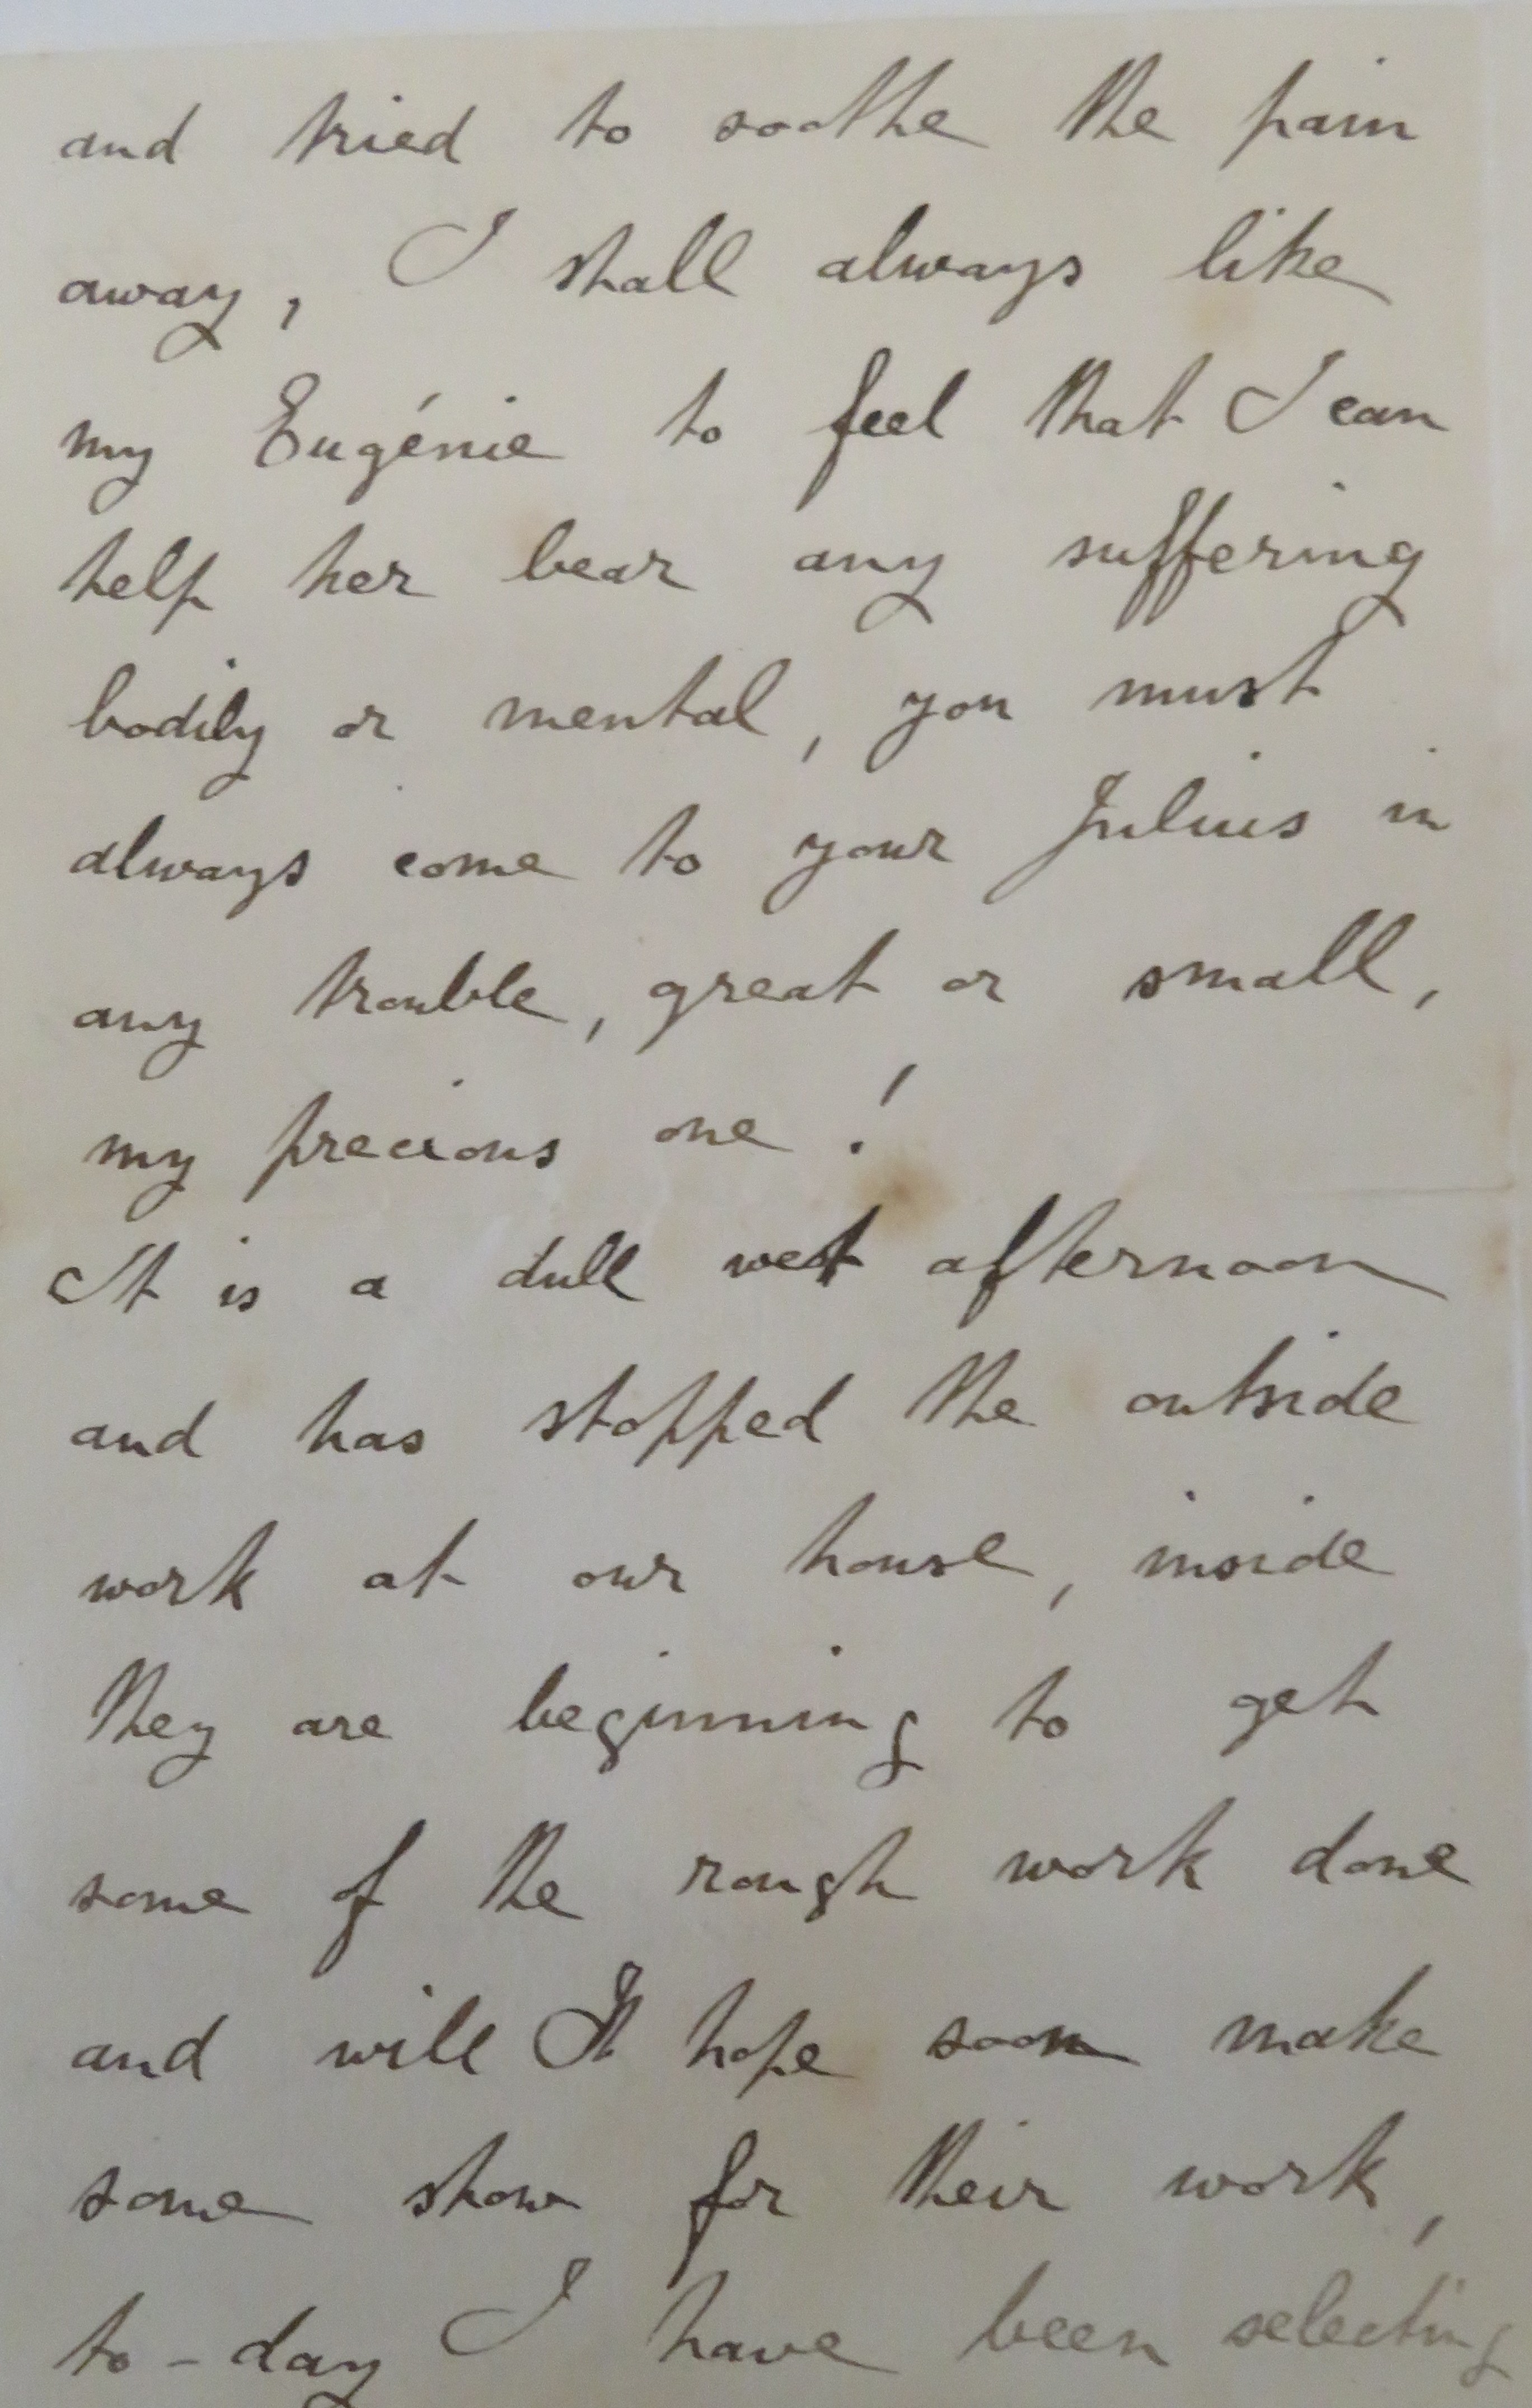 and tried to soothe the pain
away, I shall always like
my Eugénie to feel that I can
help her bear any suffering
bodily or mental, you must
always come to your Julius in
any trouble, great or small,
my precious one!
It is a dull wet afternoon
and has stopped the outside
work at our house, inside
they are beginning to get
some of the rough work done
and will I hope soon make
some show for their work,
to-day I have been selecting